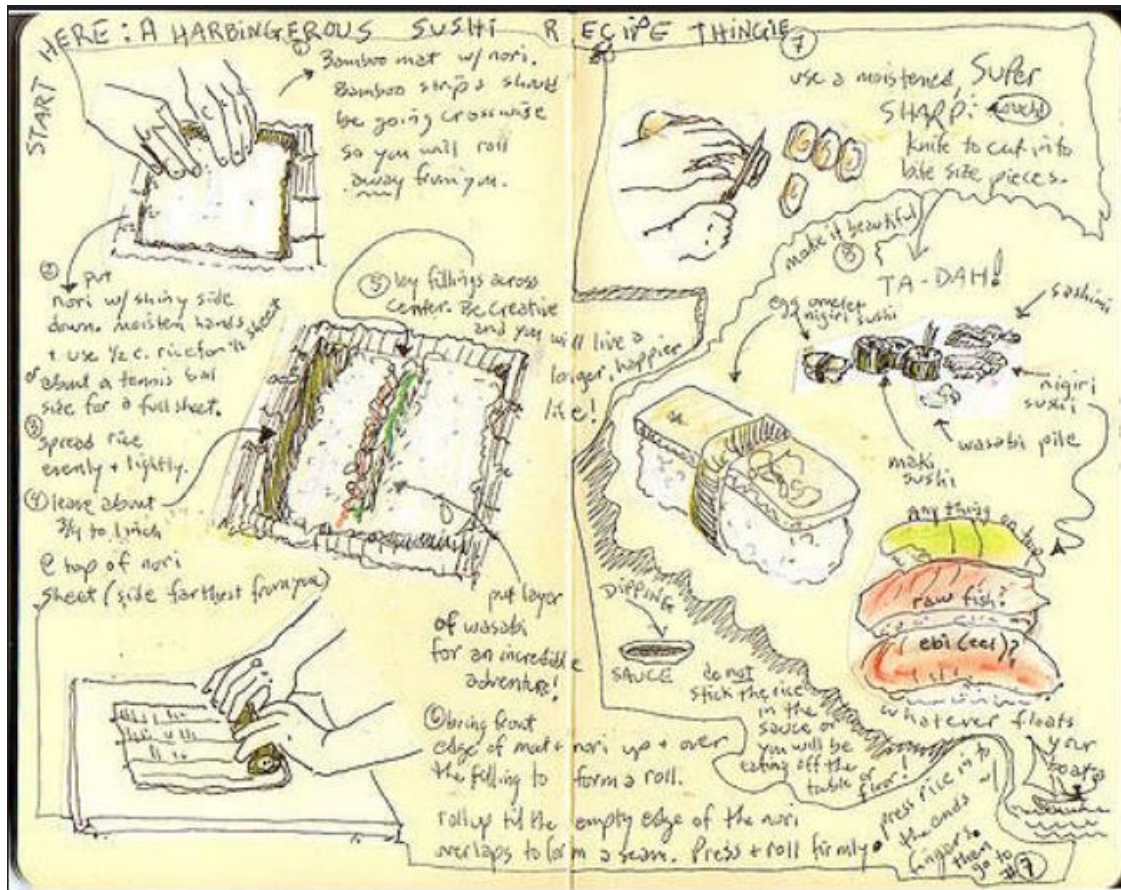 START HERE: A HARBINGEROUS SUSHI RECIPE THINGIE
Bamboo mat w/ nori.
Bamboo strips should
be going crosswise
so you will roll
away from you.
② put
nori w/ shiny side
down. moisten hands
+ use 1/2 c. rice for 1/2 sheet
or about a tennis ball
size for a full sheet.
③ spread rice
evenly + lightly.
④ leave about
3/4 to 1 inch
@ top of nori
sheet (side farthest from you)
⑤ lay fillings across
center. Be creative
and you will live a
longer, happier
life!
put layer
of wasabi
for an incredible
adventure!
⑥ bring front
edge of mat + nori up + over
the filling to form a roll.
roll up til the empty edge of the nori
overlaps to form a seam. Press + roll firmly.
press rice in to
the ends
fingers.
then
go to
#7
⑦
use a moistened, SUPER
SHARP! ouch!
knife to cut into
bite size pieces.
make it beautiful
⑧
TA-DAH!
egg omelet
nigiri sushi
sashimi
nigiri
sushi
wasabi pile
maki
sushi
anything on top
raw fish?
ebi (eel)?
whatever floats
your
boat
DIPPING
SAUCE
do not
stick the rice
in the
sauce or
you will be
eating off the
table or
floor!